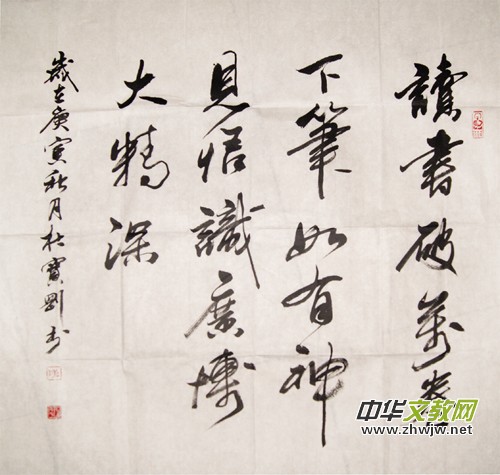 讀書破萬卷
下筆如有神
見悟識廣博
大精深
歲在庚寅秋月杜寶書
中华文教网
www.zhwjw.net